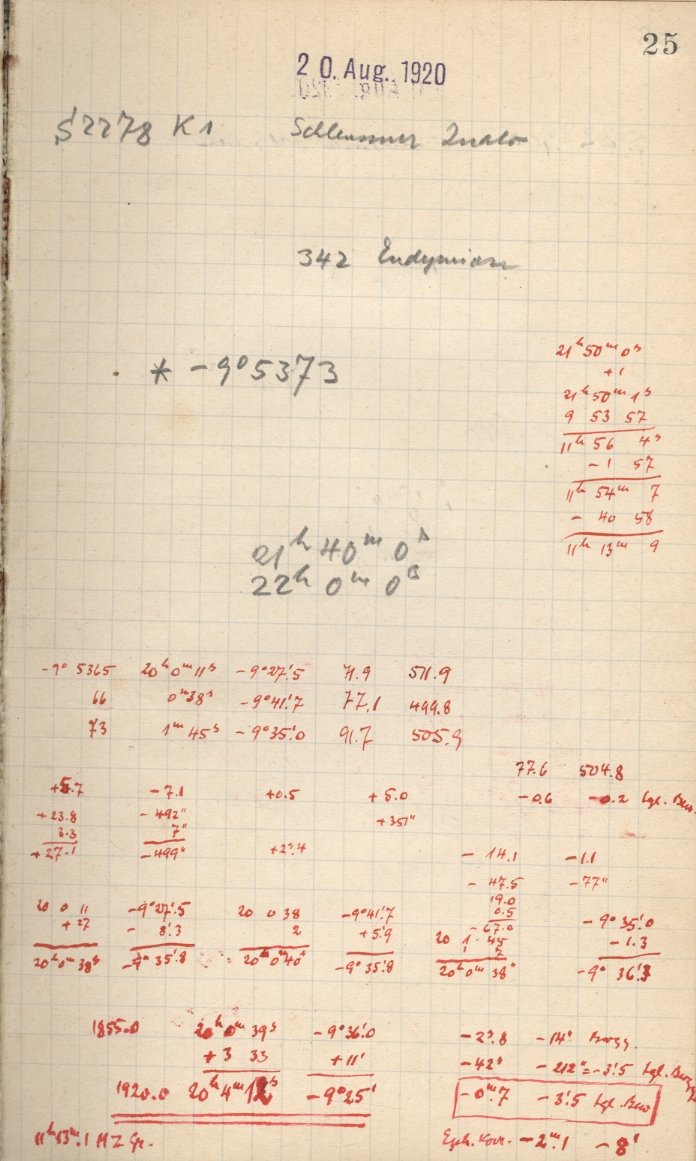 25
20. Aug. 1920
S 2278 K1
342 Endymion
* -9° 5373
21h 50m 0s
+1
21h 50m 1s
9 53 57
11h 56 4s
- 1 57
11h 54m 7
- 40 58
11h 13m 9
21h 40m 0s
22h 0m 0s
-9° 5365 20h 0m 11s -9° 27'.5 71.9 511.9
66 0m 38s -9° 41'.7 77.1 499.8
73 1m 45s -9° 35'.0 91.7 505.9
77.6 504.8
+5.7 -7.1 +0.5 +5.0 -0.6 -0.2 tgl. Bew.
+23.8 -492" +351"
3.3 7"
+27.1 -499" +2s.4 - 14.1 -1.1
- 47.5 -77"
19.0
0.5
-67.0
20 0 11 -9° 27'.5 20 0 38 -9° 41'.7 20 1 45 -9° 35'.0
+27 - 8'.3 2 +5'.9 7 -1.3
20h 0m 38s -9° 35'.8 20h 0m 40s -9° 35'.8 20h 0m 38s -9° 36'.3
1855.0 20h 0m 39s -9° 36'.0 -2s.8 -14"
+3 33 +11' -42s -212" = -3'.5 tgl. Bewg
1920.0 20h 4m 12s -9° 25' -0m.7 -3'.5 tgl. Bew
11h 13m.1 MZ Gr. Eph. Korr. -2m.1 -8'